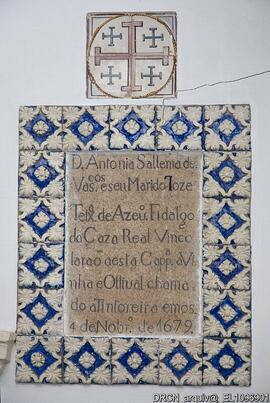 D. Antonia Sallema de
Vas.cos, e seu Marido Joze
Teix.ra de Azev.o Fidalgo
da Caza Real Vinco
larão a esta Capp.a a Vi
nha e Ollival chama
do a Tintoreira em os
4 de Nobr.o de 1679.
DRCN_arquiv@_EL1098901